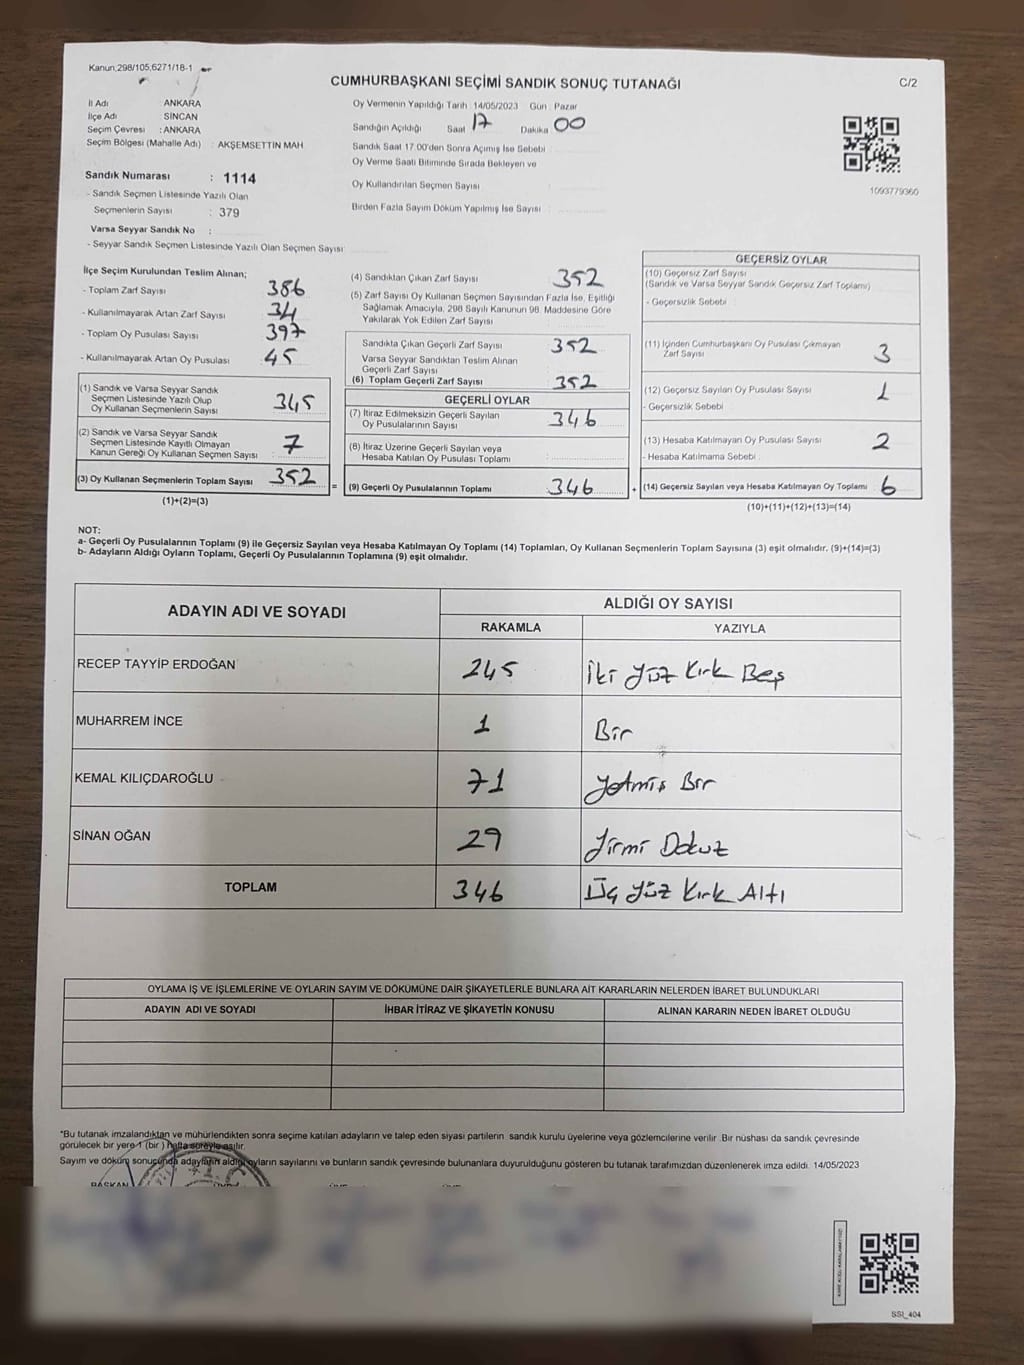 Kanun,298/105,6271/18-1
CUMHURBAŞKANI SEÇİMİ SANDIK SONUÇ TUTANAĞI
C/2
İl Adı ANKARA
İlçe Adı SİNCAN
Seçim Çevresi : ANKARA
Seçim Bölgesi (Mahalle Adı) : AKŞEMSETTİN MAH
Oy Vermenin Yapıldığı Tarih 14/05/2023 Gün : Pazar
Sandığın Açıldığı Saat 17 Dakika 00
Sandık Saat 17.00'den Sonra Açımış İse Sebebi
Oy Verme Saati Bitiminde Sırada Bekleyen ve
Oy Kullandırılan Seçmen Sayısı
Birden Fazla Sayım Döküm Yapılmış İse Sayısı
1093779360
Sandık Numarası : 1114
- Sandık Seçmen Listesinde Yazılı Olan
Seçmenlerin Sayısı : 379
Varsa Seyyar Sandık No :
- Seyyar Sandık Seçmen Listesinde Yazılı Olan Seçmen Sayısı
İlçe Seçim Kurulundan Teslim Alınan;
- Toplam Zarf Sayısı 386
- Kullanılmayarak Artan Zarf Sayısı 34
- Toplam Oy Pusulası Sayısı 397
- Kullanılmayarak Artan Oy Pusulası 45
(1) Sandık ve Varsa Seyyar Sandık
Seçmen Listesinde Yazılı Olup
Oy Kullanan Seçmenlerin Sayısı 345
(2) Sandık ve Varsa Seyyar Sandık
Seçmen Listesinde Kayıtlı Olmayan
Kanun Gereği Oy Kullanan Seçmen Sayısı 7
(3) Oy Kullanan Seçmenlerin Toplam Sayısı 352
(1)+(2)=(3)
(4) Sandıktan Çıkan Zarf Sayısı 352
(5) Zarf Sayısı Oy Kullanan Seçmen Sayısından Fazla İse, Eşitliği
Sağlamak Amacıyla, 298 Sayılı Kanunun 98. Maddesine Göre
Yakılarak Yok Edilen Zarf Sayısı
Sandıkta Çıkan Geçerli Zarf Sayısı 352
Varsa Seyyar Sandıktan Teslim Alınan
Geçerli Zarf Sayısı
(6) Toplam Geçerli Zarf Sayısı 352
GEÇERLİ OYLAR
(7) İtiraz Edilmeksizin Geçerli Sayılan
Oy Pusulalarının Sayısı 346
(8) İtiraz Üzerine Geçerli Sayılan veya
Hesaba Katılan Oy Pusulası Toplamı
= (9) Geçerli Oy Pusulalarının Toplamı 346
GEÇERSİZ OYLAR
(10) Geçersiz Zarf Sayısı
(Sandık ve Varsa Seyyar Sandık Geçersiz Zarf Toplamı)
- Geçersizlik Sebebi
(11) İçinden Cumhurbaşkanı Oy Pusulası Çıkmayan
Zarf Sayısı 3
(12) Geçersiz Sayılan Oy Pusulası Sayısı 1
- Geçersizlik Sebebi
(13) Hesaba Katılmayan Oy Pusulası Sayısı 2
- Hesaba Katılmama Sebebi
+ (14) Geçersiz Sayılan veya Hesaba Katılmayan Oy Toplamı 6
(10)+(11)+(12)+(13)=(14)
NOT:
a- Geçerli Oy Pusulalarının Toplamı (9) ile Geçersiz Sayılan veya Hesaba Katılmayan Oy Toplamı (14) Toplamları, Oy Kullanan Seçmenlerin Toplam Sayısına (3) eşit olmalıdır. (9)+(14)=(3)
b- Adayların Aldığı Oyların Toplamı, Geçerli Oy Pusulalarının Toplamına (9) eşit olmalıdır.
ADAYIN ADI VE SOYADI ALDIĞI OY SAYISI
RAKAMLA YAZIYLA
RECEP TAYYİP ERDOĞAN 245 İki Yüz Kırk Beş
MUHARREM İNCE 1 Bir
KEMAL KILIÇDAROĞLU 71 Yetmiş Bir
SİNAN OĞAN 29 Yirmi Dokuz
TOPLAM 346 Üç Yüz Kırk Altı
OYLAMA İŞ VE İŞLEMLERİNE VE OYLARIN SAYIM VE DÖKÜMÜNE DAİR ŞİKAYETLERLE BUNLARA AİT KARARLARIN NELERDEN İBARET BULUNDUKLARI
ADAYIN ADI VE SOYADI İHBAR İTİRAZ VE ŞİKAYETİN KONUSU ALINAN KARARIN NEDEN İBARET OLDUĞU
*Bu tutanak imzalandıktan ve mühürlendikten sonra seçime katılan adayların ve talep eden siyasi partilerin sandık kurulu üyelerine veya gözlemcilerine verilir .Bir nüshası da sandık çevresinde
görülecek bir yere 1 (bir ) hafta süreyle asılır.
Sayım ve döküm sonucunda adayların aldığı oyların sayılarını ve bunların sandık çevresinde bulunanlara duyurulduğunu gösteren bu tutanak tarafımızdan düzenlenerek imza edildi. 14/05/2023
BAŞKAN
SSI_404